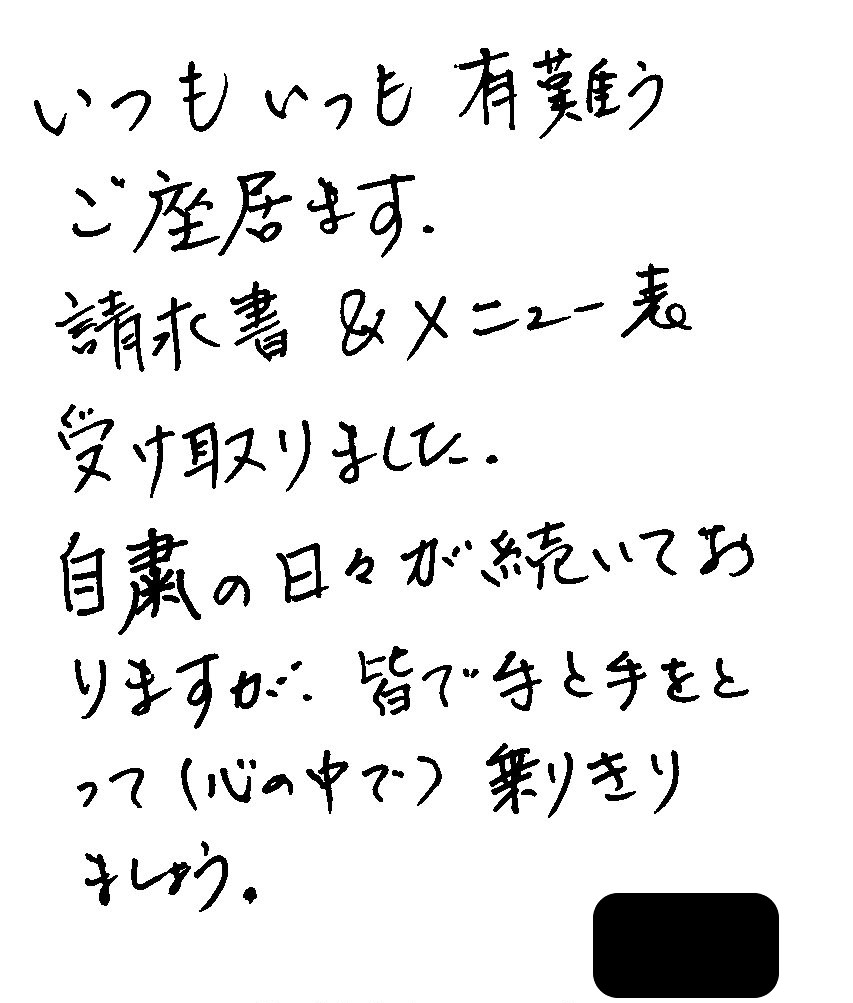 いつもいつも 有難う
ご座居ます.
請求書 & メニュー表
受け取りました.
自粛の日々が続いてお
りますが. 皆で手と手をと
って(心の中で) 乗りきり
ましょう.